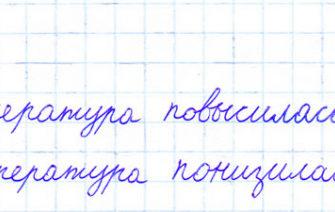 ература повысилась
пература понизилас